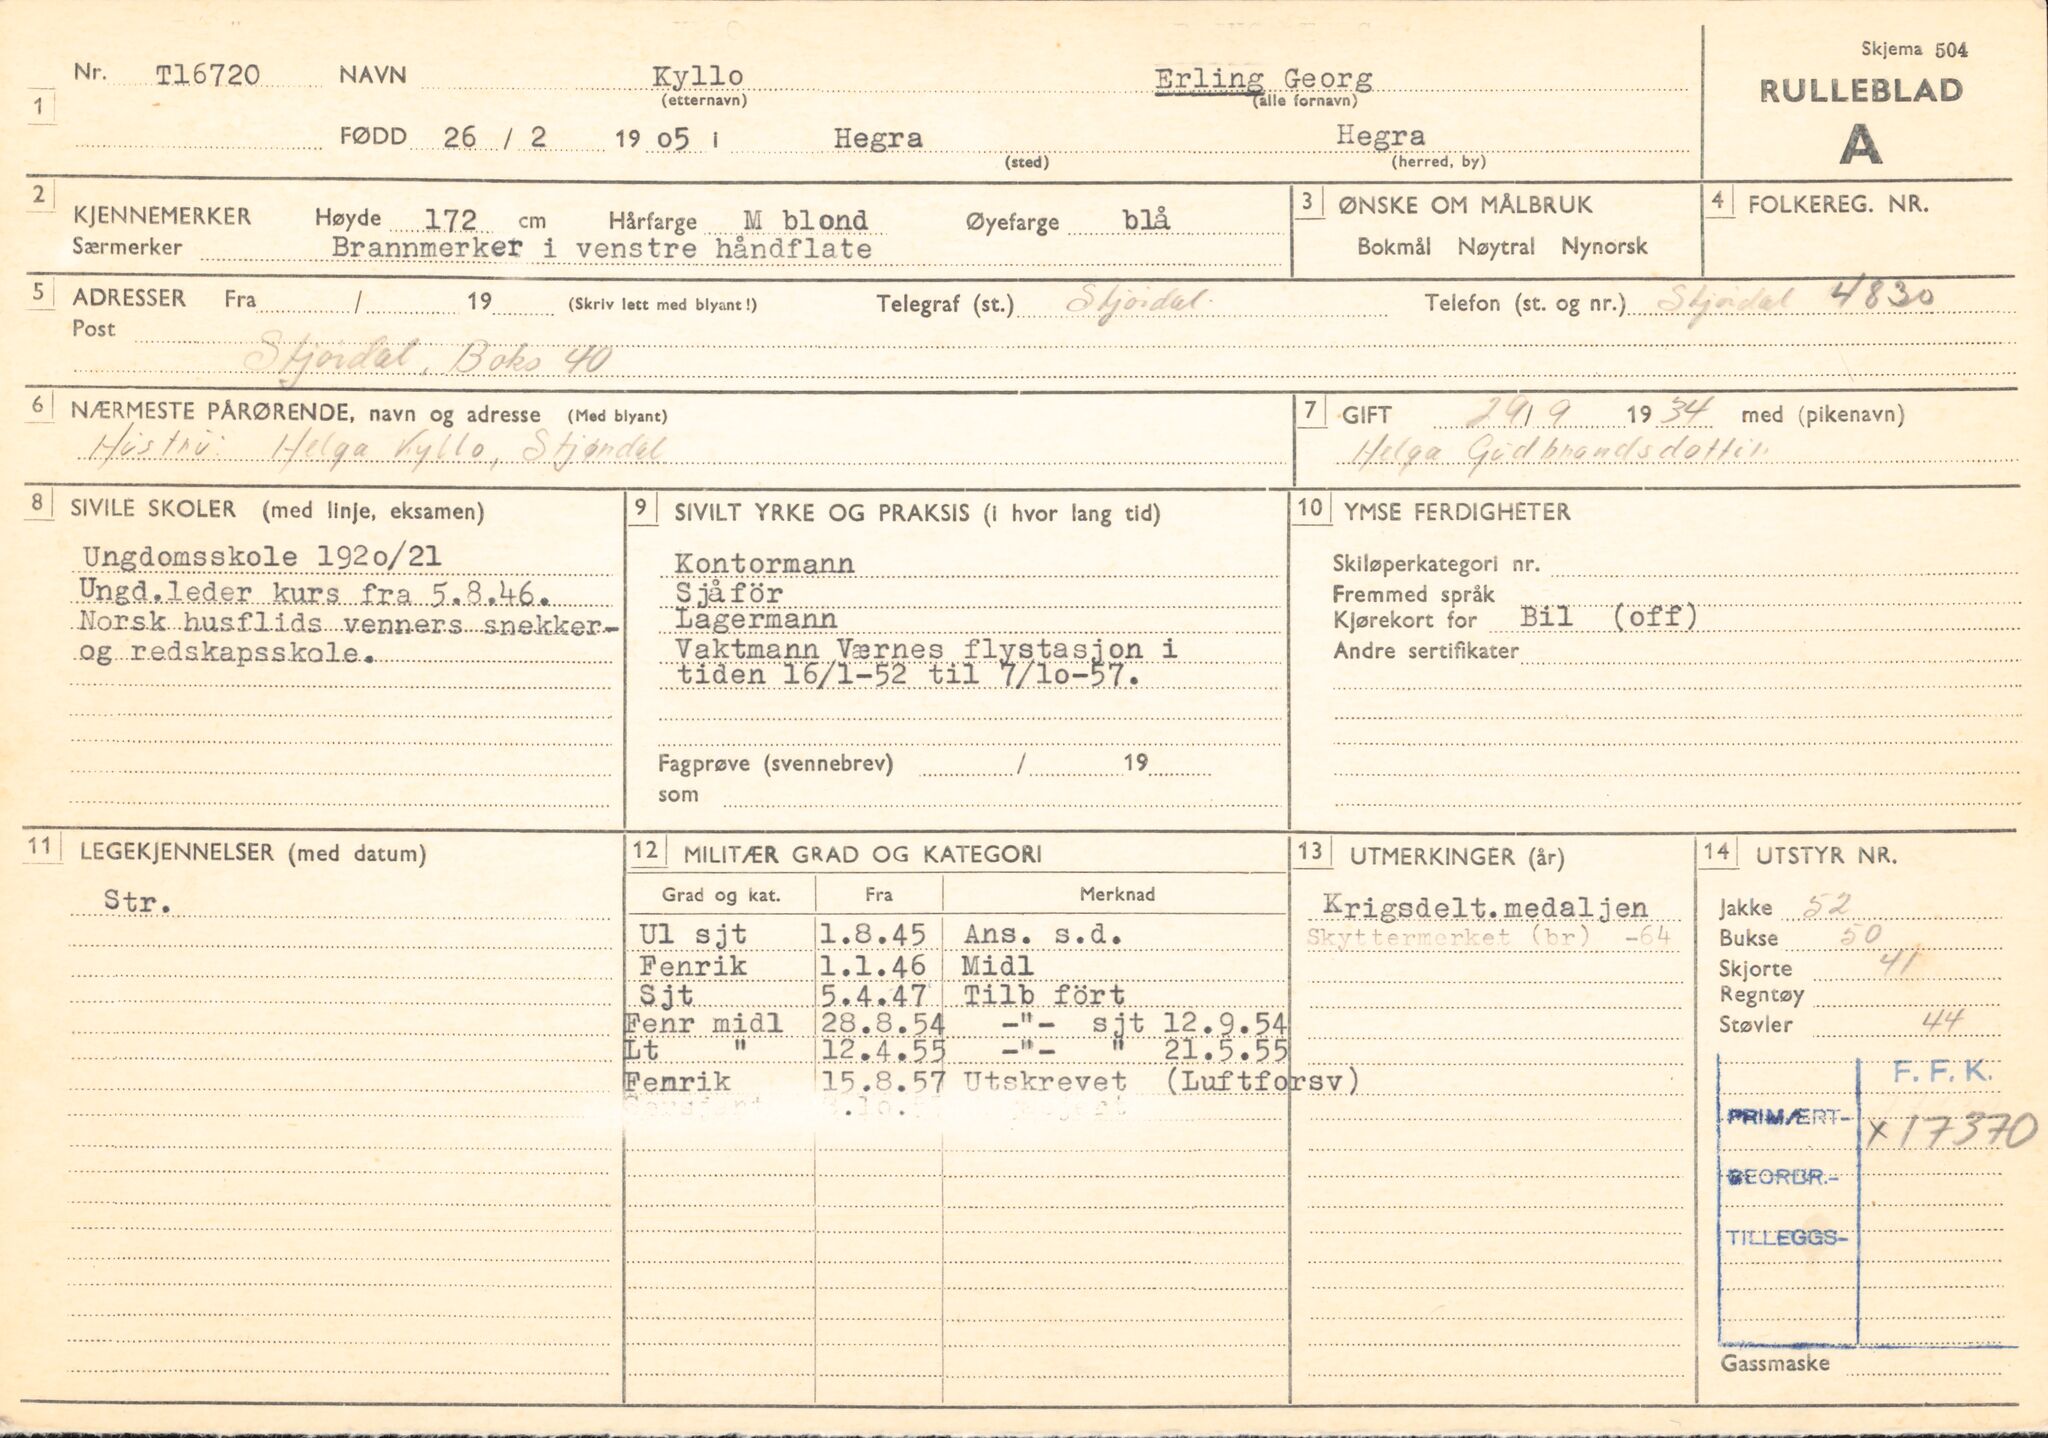 Skjema 504
RULLEBLAD
A
1 Nr. T16720 NAVN Kyllo Erling Georg
(etternavn) (alle fornavn)
FØDD 26 / 2 1905 i Hegra Hegra
(sted) (herred, by)
2 KJENNEMERKER Høyde 172 cm Hårfarge M blond Øyefarge blå
Særmerker Brannmerker i venstre håndflate
3 ØNSKE OM MÅLBRUK
Bokmål Nøytral Nynorsk
4 FOLKEREG. NR.
5 ADRESSER Fra / 19 (Skriv lett med blyant!) Telegraf (st.) Stjørdal. Telefon (st. og nr.) Stjørdal 4830
Post
Stjørdal, Boks 40
6 NÆRMESTE PÅRØRENDE, navn og adresse (Med blyant)
Hustru: Helga Kyllo, Stjørdal
7 GIFT 29/9 1934 med (pikenavn)
Helga Gudbrandsdottir
8 SIVILE SKOLER (med linje, eksamen)
Ungdomsskole 1920/21
Ungd.leder kurs fra 5.8.46.
Norsk husflids venners snekker-
og redskapsskole.
9 SIVILT YRKE OG PRAKSIS (i hvor lang tid)
Kontormann
Sjåför
Lagermann
Vaktmann Værnes flystasjon i
tiden 16/1-52 til 7/10-57.
Fagprøve (svennebrev) / 19
som
10 YMSE FERDIGHETER
Skiløperkategori nr.
Fremmed språk
Kjørekort for Bil (off)
Andre sertifikater
11 LEGEKJENNELSER (med datum)
Str.
12 MILITÆR GRAD OG KATEGORI
Grad og kat. Fra Merknad
Ul sjt 1.8.45 Ans. s.d.
Fenrik 1.1.46 Midl
Sjt 5.4.47 Tilb fört
Fenr midl 28.8.54 -"- sjt 12.9.54
Lt " 12.4.55 -"- " 21.5.55
Fenrik 15.8.57 Utskrevet (Luftforsv)
13 UTMERKINGER (år)
Krigsdelt.medaljen
Skyttermerket (br) -64
14 UTSTYR NR.
Jakke 52
Bukse 50
Skjorte 41
Regntøy
Støvler 44
F. F. K.
PRIMÆRT- x 17370
BEORDR.-
TILLEGGS-
Gassmaske